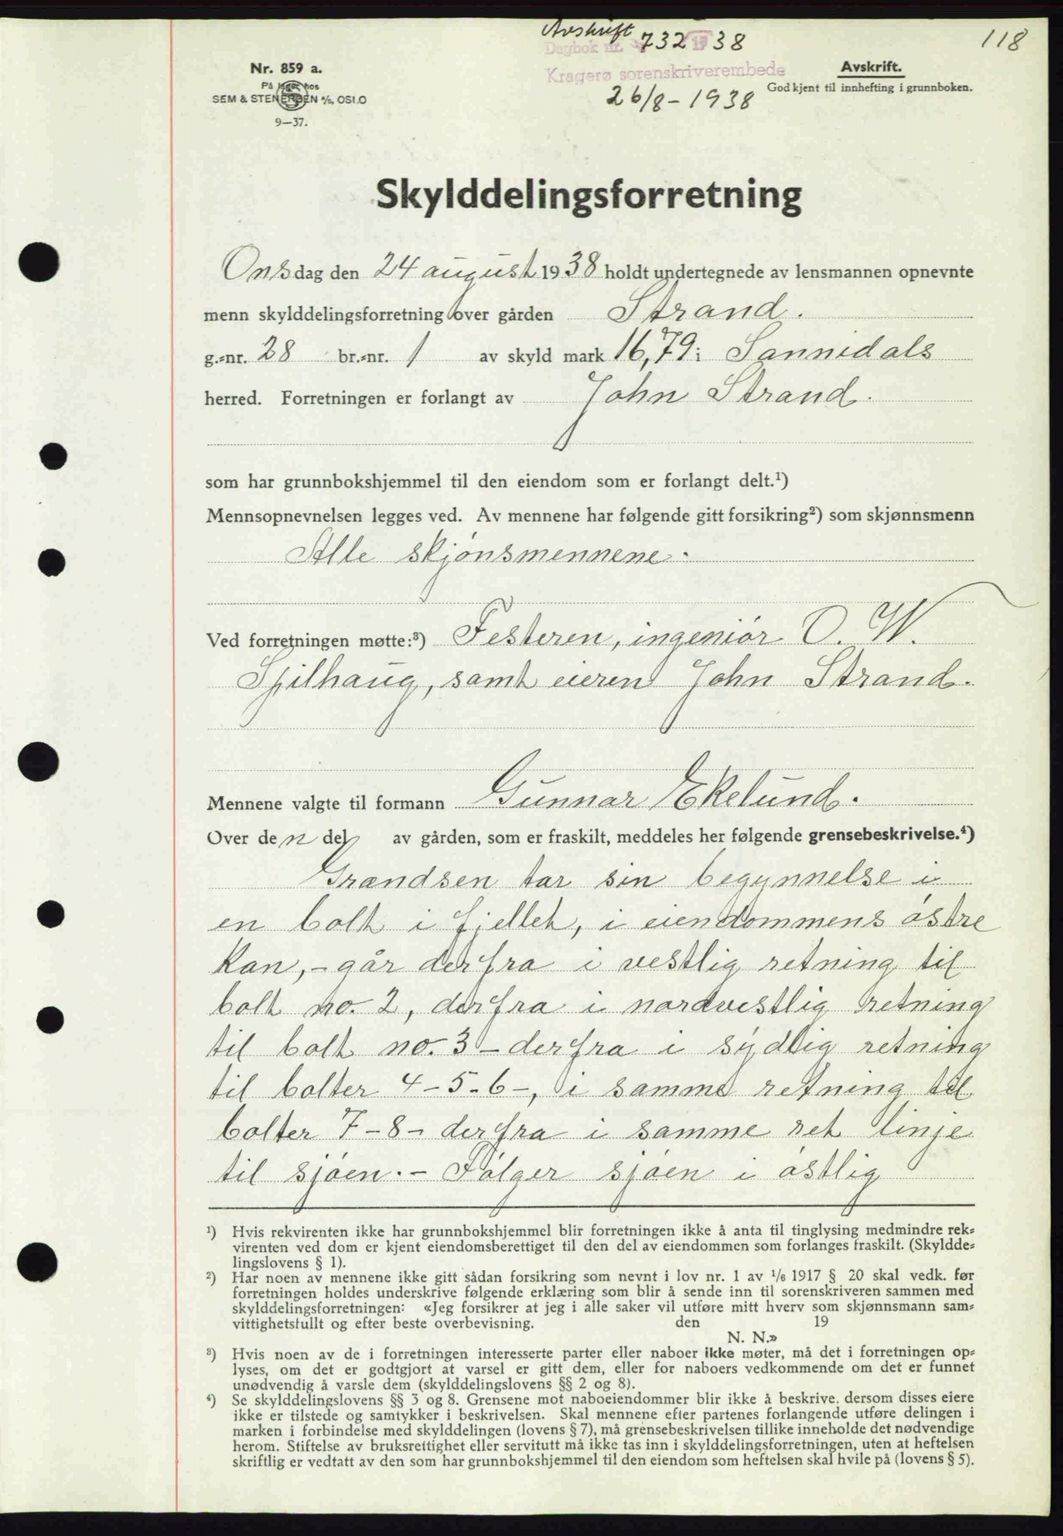 Avskrift 118
Dagbok nr. 732 1938
Nr. 859 a. Kragerø sorenskriverembede Avskrift.
På lager hos 26/8-1938 Godkjent til innhefting i grunnboken.
SEM & STENERSEN A/S, OSLO
9—37.
Skylddelingsforretning
Onsdag den 24 august 1938 holdt undertegnede av lensmannen opnevnte
menn skylddelingsforretning over gården Strand.
g.-nr. 28 br.-nr. 1 av skyld mark 16,79 i Sannidals
herred. Forretningen er forlangt av John Strand.
som har grunnbokshjemmel til den eiendom som er forlangt delt.¹)
Mennsopnevnelsen legges ved. Av mennene har følgende gitt forsikring²) som skjønnsmenn
Alle skjønsmennene.
Ved forretningen møtte:³) Festeren, ingeniør O. W.
Spilhaug, samt eieren John Strand.
Mennene valgte til formann Gunnar Ekelund.
Over den del av gården, som er fraskilt, meddeles her følgende grensebeskrivelse.⁴)
Grændsen tar sin begynnelse i
en bolt i fjellet, i eiendommens østre
kan, - går derfra i vestlig retning til
bolt no. 2, derfra i nordvestlig retning
til bolt no. 3 - derfra i sydlig retning
til bolter 4-5-6-, i samme retning til
bolter 7-8- derfra i samme ret linje
til sjøen. - Følger sjøen i østlig
¹) Hvis rekvirenten ikke har grunnbokshjemmel blir forretningen ikke å anta til tinglysing medmindre rek-
virenten ved dom er kjent eiendomsberettiget til den del av eiendommen som forlanges fraskilt. (Skyldde-
lingslovens § 1).
²) Har noen av mennene ikke gitt sådan forsikring som nevnt i lov nr. 1 av 1/6 1917 § 20 skal vedk. før
forretningen holdes underskrive følgende erklæring som blir å sende inn til sorenskriveren sammen med
skylddelingsforretningen: «Jeg forsikrer at jeg i alle saker vil utføre mitt hverv som skjønnsmann sam-
vittighetsfullt og efter beste overbevisning. den 19
N. N.»
³) Hvis noen av de i forretningen interesserte parter eller naboer ikke møter, må det i forretningen op-
lyses, om det er godtgjort at varsel er gitt dem, eller for naboers vedkommende om det er funnet
unødvendig å varsle dem (skylddelingslovens §§ 2 og 8).
⁴) Se skylddelingslovens §§ 3 og 8. Grensene mot naboeiendommer blir ikke å beskrive, dersom disses eiere
ikke er tilstede og samtykker i beskrivelsen. Skal mennene efter partenes forlangende utføre delingen i
marken i forbindelse med skylddelingen (lovens § 7), må grensebeskrivelsen tillike inneholde det nødvendige
herom. Stiftelse av bruksrettighet eller servitutt må ikke tas inn i skylddelingsforretningen, uten at heftelsen
skriftlig er vedtatt av den som har grunnbokshjemmel til den eiendom som heftelsen skal hvile på (lovens § 5).